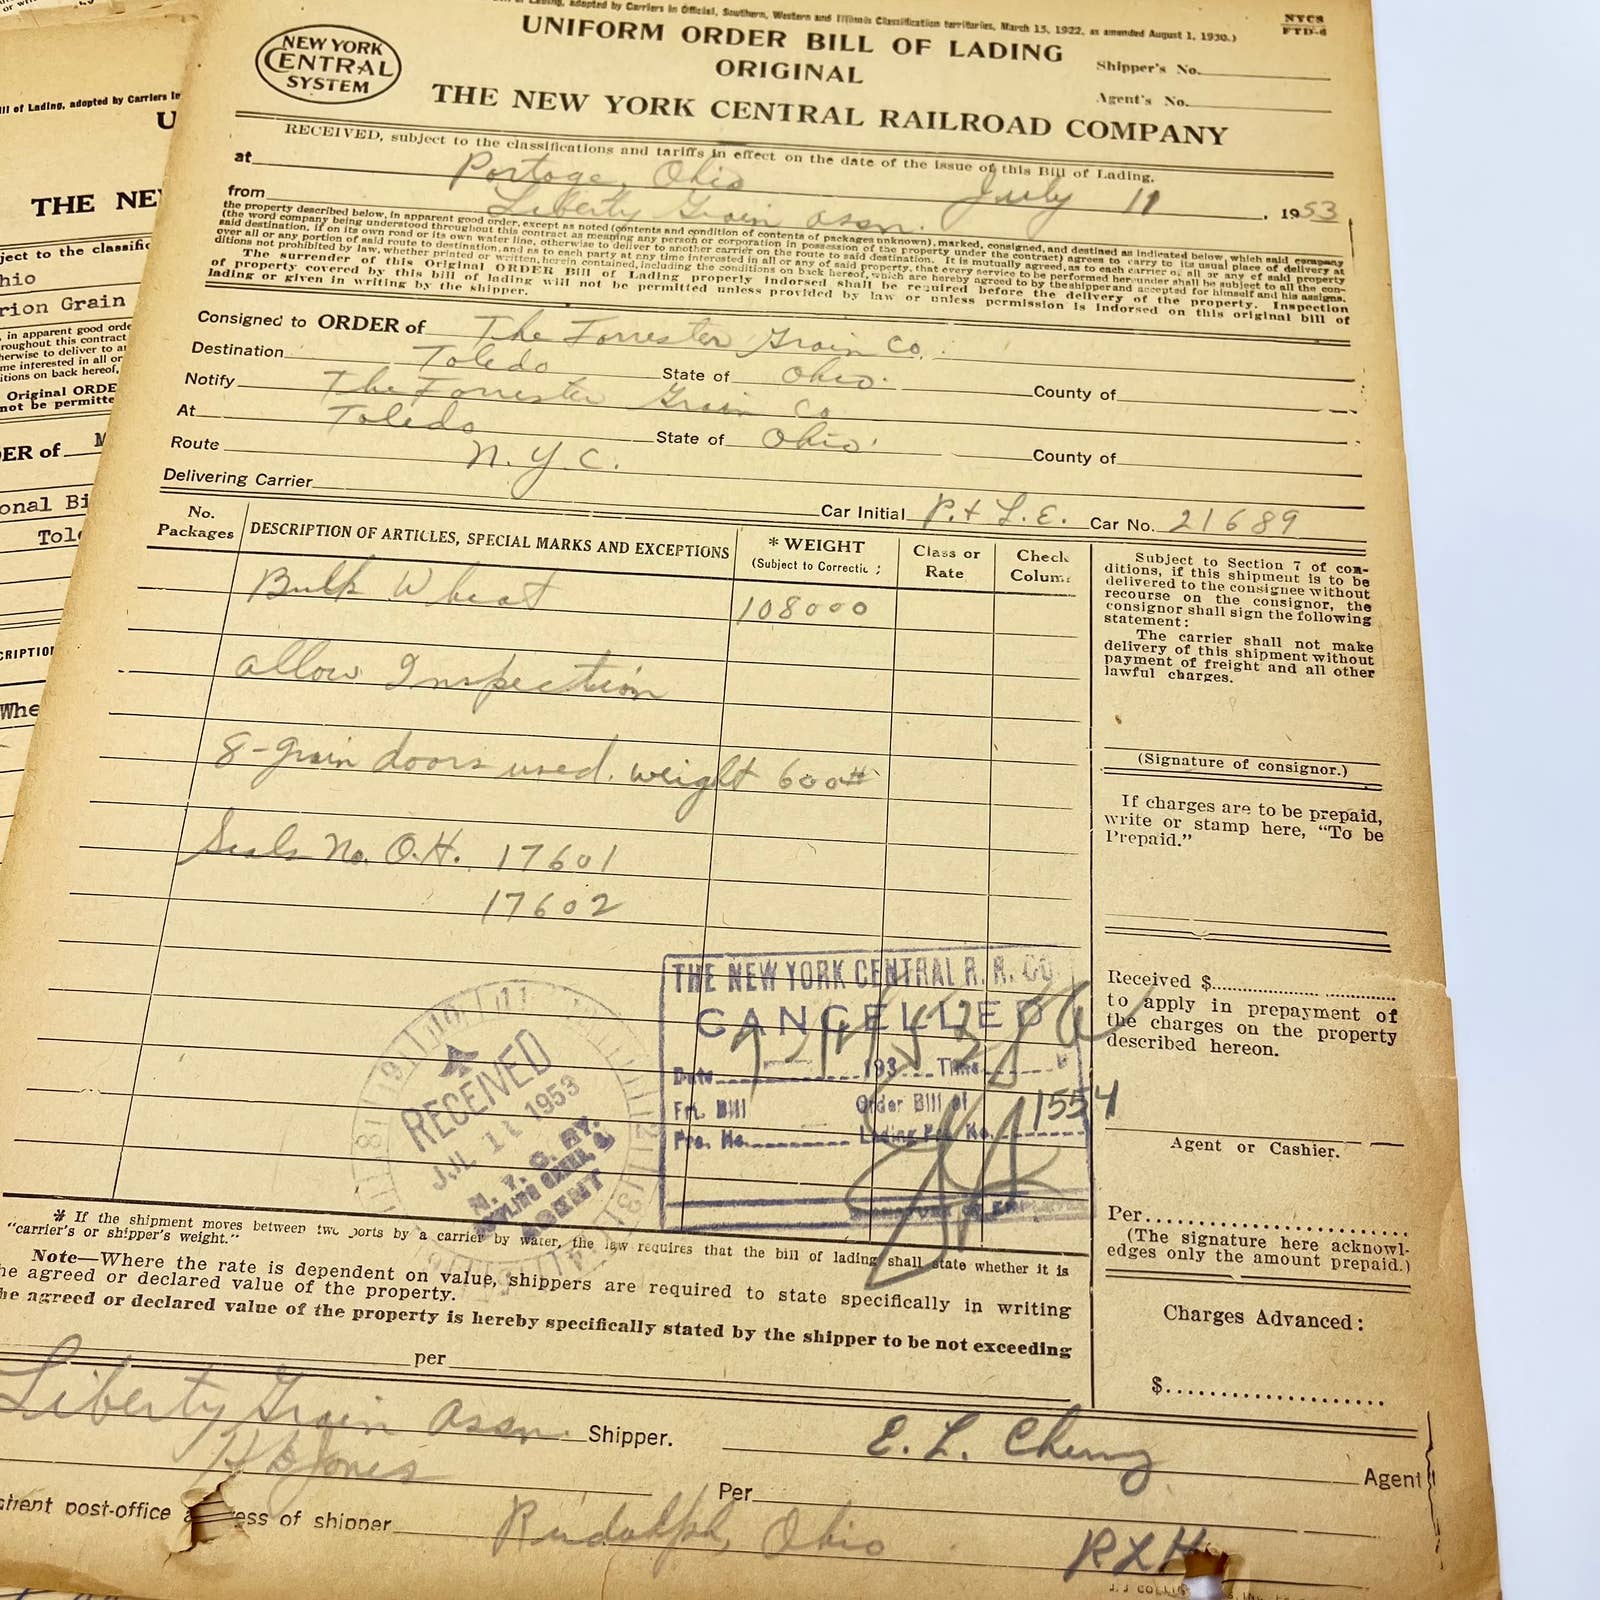 of Lading, adopted by Carriers in Official, Southern, Western and Illinois Classification territories, March 15, 1922, as amended August 1, 1930.)
NYCS
FTD-6
UNIFORM ORDER BILL OF LADING
ORIGINAL
Shipper's No.
Agent's No.
NEW YORK
CENTRAL
SYSTEM
THE NEW YORK CENTRAL RAILROAD COMPANY
RECEIVED, subject to the classifications and tariffs in effect on the date of the issue of this Bill of Lading,
at Portage, Ohio July 11, 1953
from Liberty Grain Assn.
the property described below, in apparent good order, except as noted (contents and condition of contents of packages unknown), marked, consigned, and destined as indicated below, which said company
(the word company being understood throughout this contract as meaning any person or corporation in possession of the property under the contract) agrees to carry to its usual place of delivery at
said destination, if on its own road or its own water line, otherwise to deliver to another carrier on the route to said destination. It is mutually agreed, as to each carrier of all or any of said property
over all or any portion of said route to destination, and as to each party at any time interested in all or any of said property, that every service to be performed hereunder shall be subject to all the con-
ditions not prohibited by law, whether printed or written, herein contained, including the conditions on back hereof, which are hereby agreed to by the shipper and accepted for himself and his assigns.
The surrender of this Original ORDER Bill of Lading properly indorsed shall be required before the delivery of the property. Inspection
of property covered by this bill of lading will not be permitted unless provided by law or unless permission is indorsed on this original bill of
lading or given in writing by the shipper.
Consigned to ORDER of The Forrester Grain Co.
Destination Toledo State of Ohio. County of
Notify The Forrester Grain Co
At Toledo State of Ohio County of
Route N.Y.C.
Delivering Carrier Car Initial P.+ L.E. Car No. 21689
No.
Packages
DESCRIPTION OF ARTICLES, SPECIAL MARKS AND EXCEPTIONS
* WEIGHT
(Subject to Correctic
Class or
Rate
Check
Colum
Bulk Wheat 108000
allow Inspection
8-grain doors used. weight 600#
Seals No. O.H. 17601
17602
Subject to Section 7 of con-
ditions, if this shipment is to be
delivered to the consignee without
recourse on the consignor, the
consignor shall sign the following
statement:
The carrier shall not make
delivery of this shipment without
payment of freight and all other
lawful charges.
(Signature of consignor.)
If charges are to be prepaid,
write or stamp here, "To be
Prepaid."
Received $
to apply in prepayment of
the charges on the property
described hereon.
Agent or Cashier.
Per
(The signature here acknowl-
edges only the amount prepaid.)
Charges Advanced:
$
THE NEW YORK CENTRAL R. R. CO
CANCELLED
Date 193 Time
Frt. Bill Order Bill of
Pro. No. Lading Pro. No. 1554
9 10 11
RECEIVED
JUL 11 1953
AGENT
* If the shipment moves between two ports by a carrier by water, the law requires that the bill of lading shall state whether it is
"carrier's or shipper's weight."
Note—Where the rate is dependent on value, shippers are required to state specifically in writing
he agreed or declared value of the property.
he agreed or declared value of the property is hereby specifically stated by the shipper to be not exceeding
per
Liberty Grain Assn. Shipper.
Agent
Jones
Per
post-office ess of shipper Rudolph, Ohio
RLH
J. J COLLI
ill of Lading, adopted by Carriers In
U
THE NE
ject to the classific
hio
rion Grain
, in apparent good orde
roughout this contract
herwise to deliver to an
me interested in all or
itions on back hereof,
Original ORDE
not be permitte
ER of M
onal Bi
Tol
CRIPTION
Whe